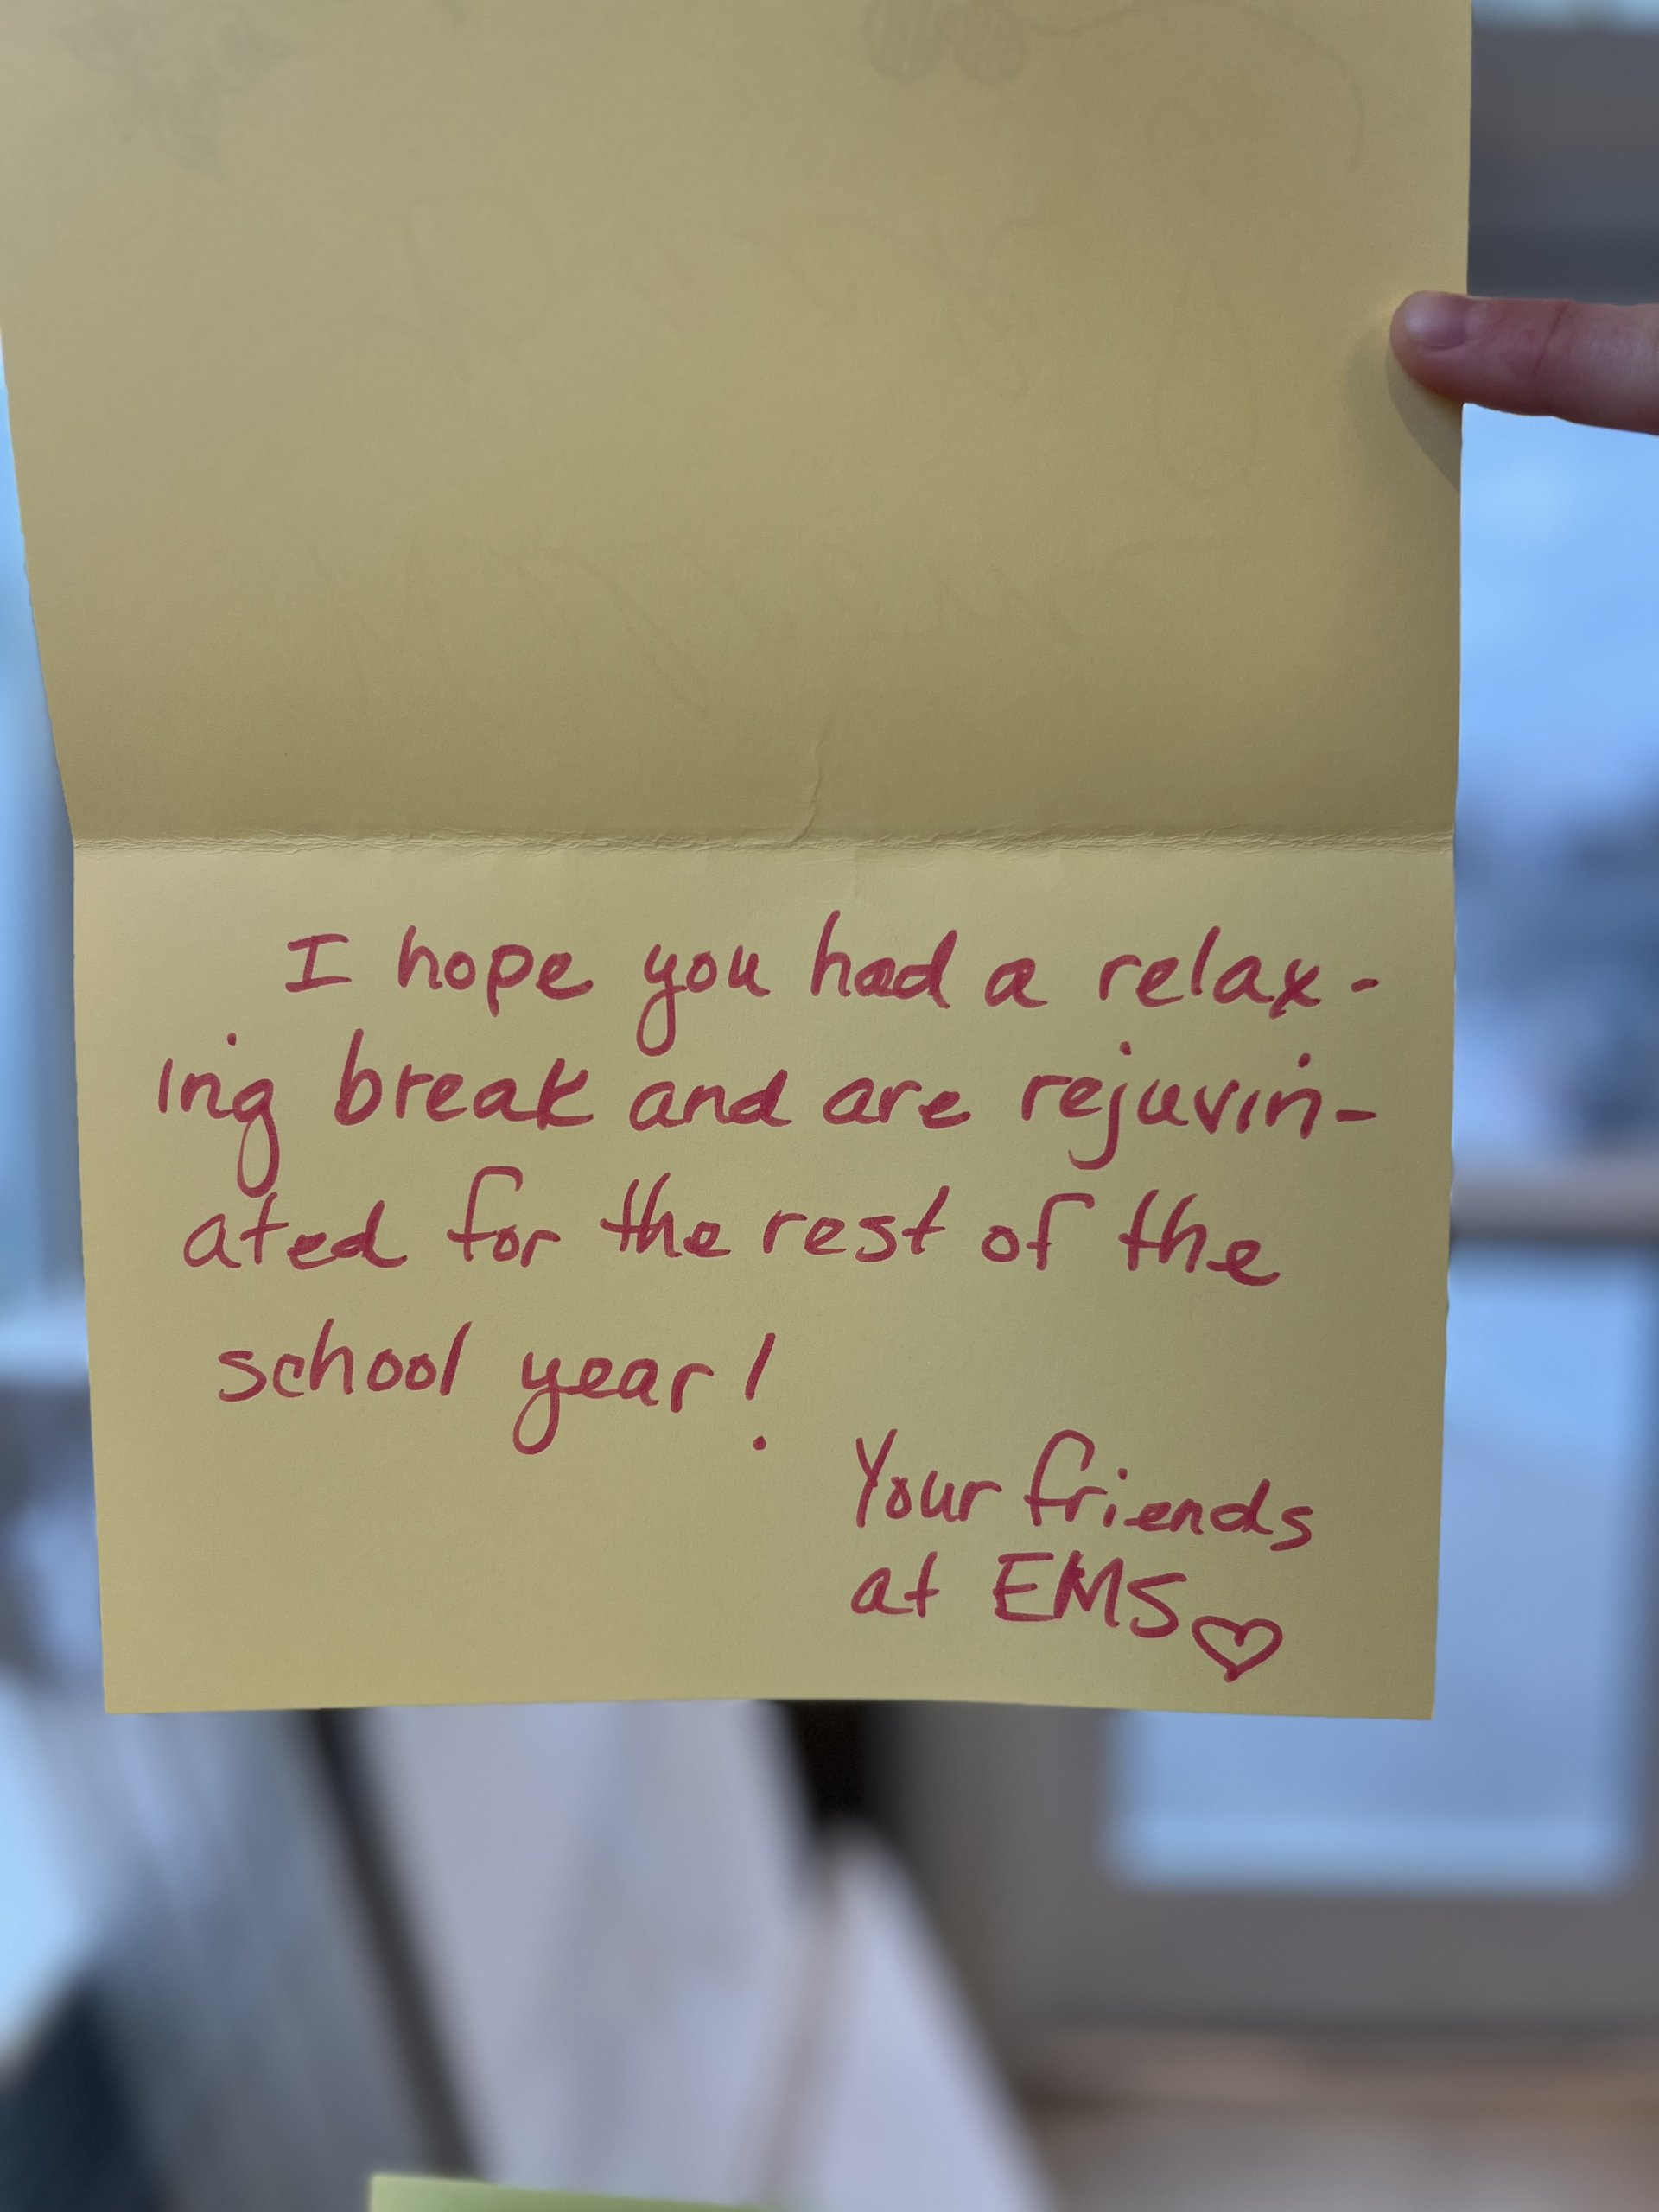 I hope you had a relax-
ing break and are rejuvin-
ated for the rest of the
school year!
Your friends
at EMS♡